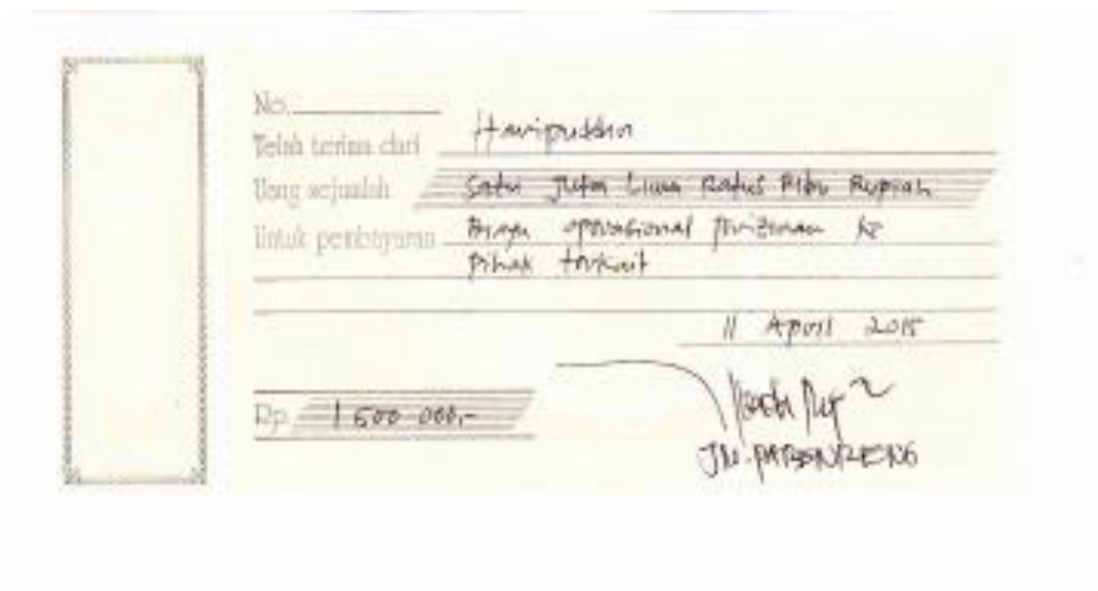 No.
Telah terima dari Haripuddin
Uang sejumlah Satu Juta Lima Ratus Ribu Rupiah
Untuk pembayaran Biaya operasional perizinan ke
pihak terkait
11 April 2015
Rp. 1.500.000,-